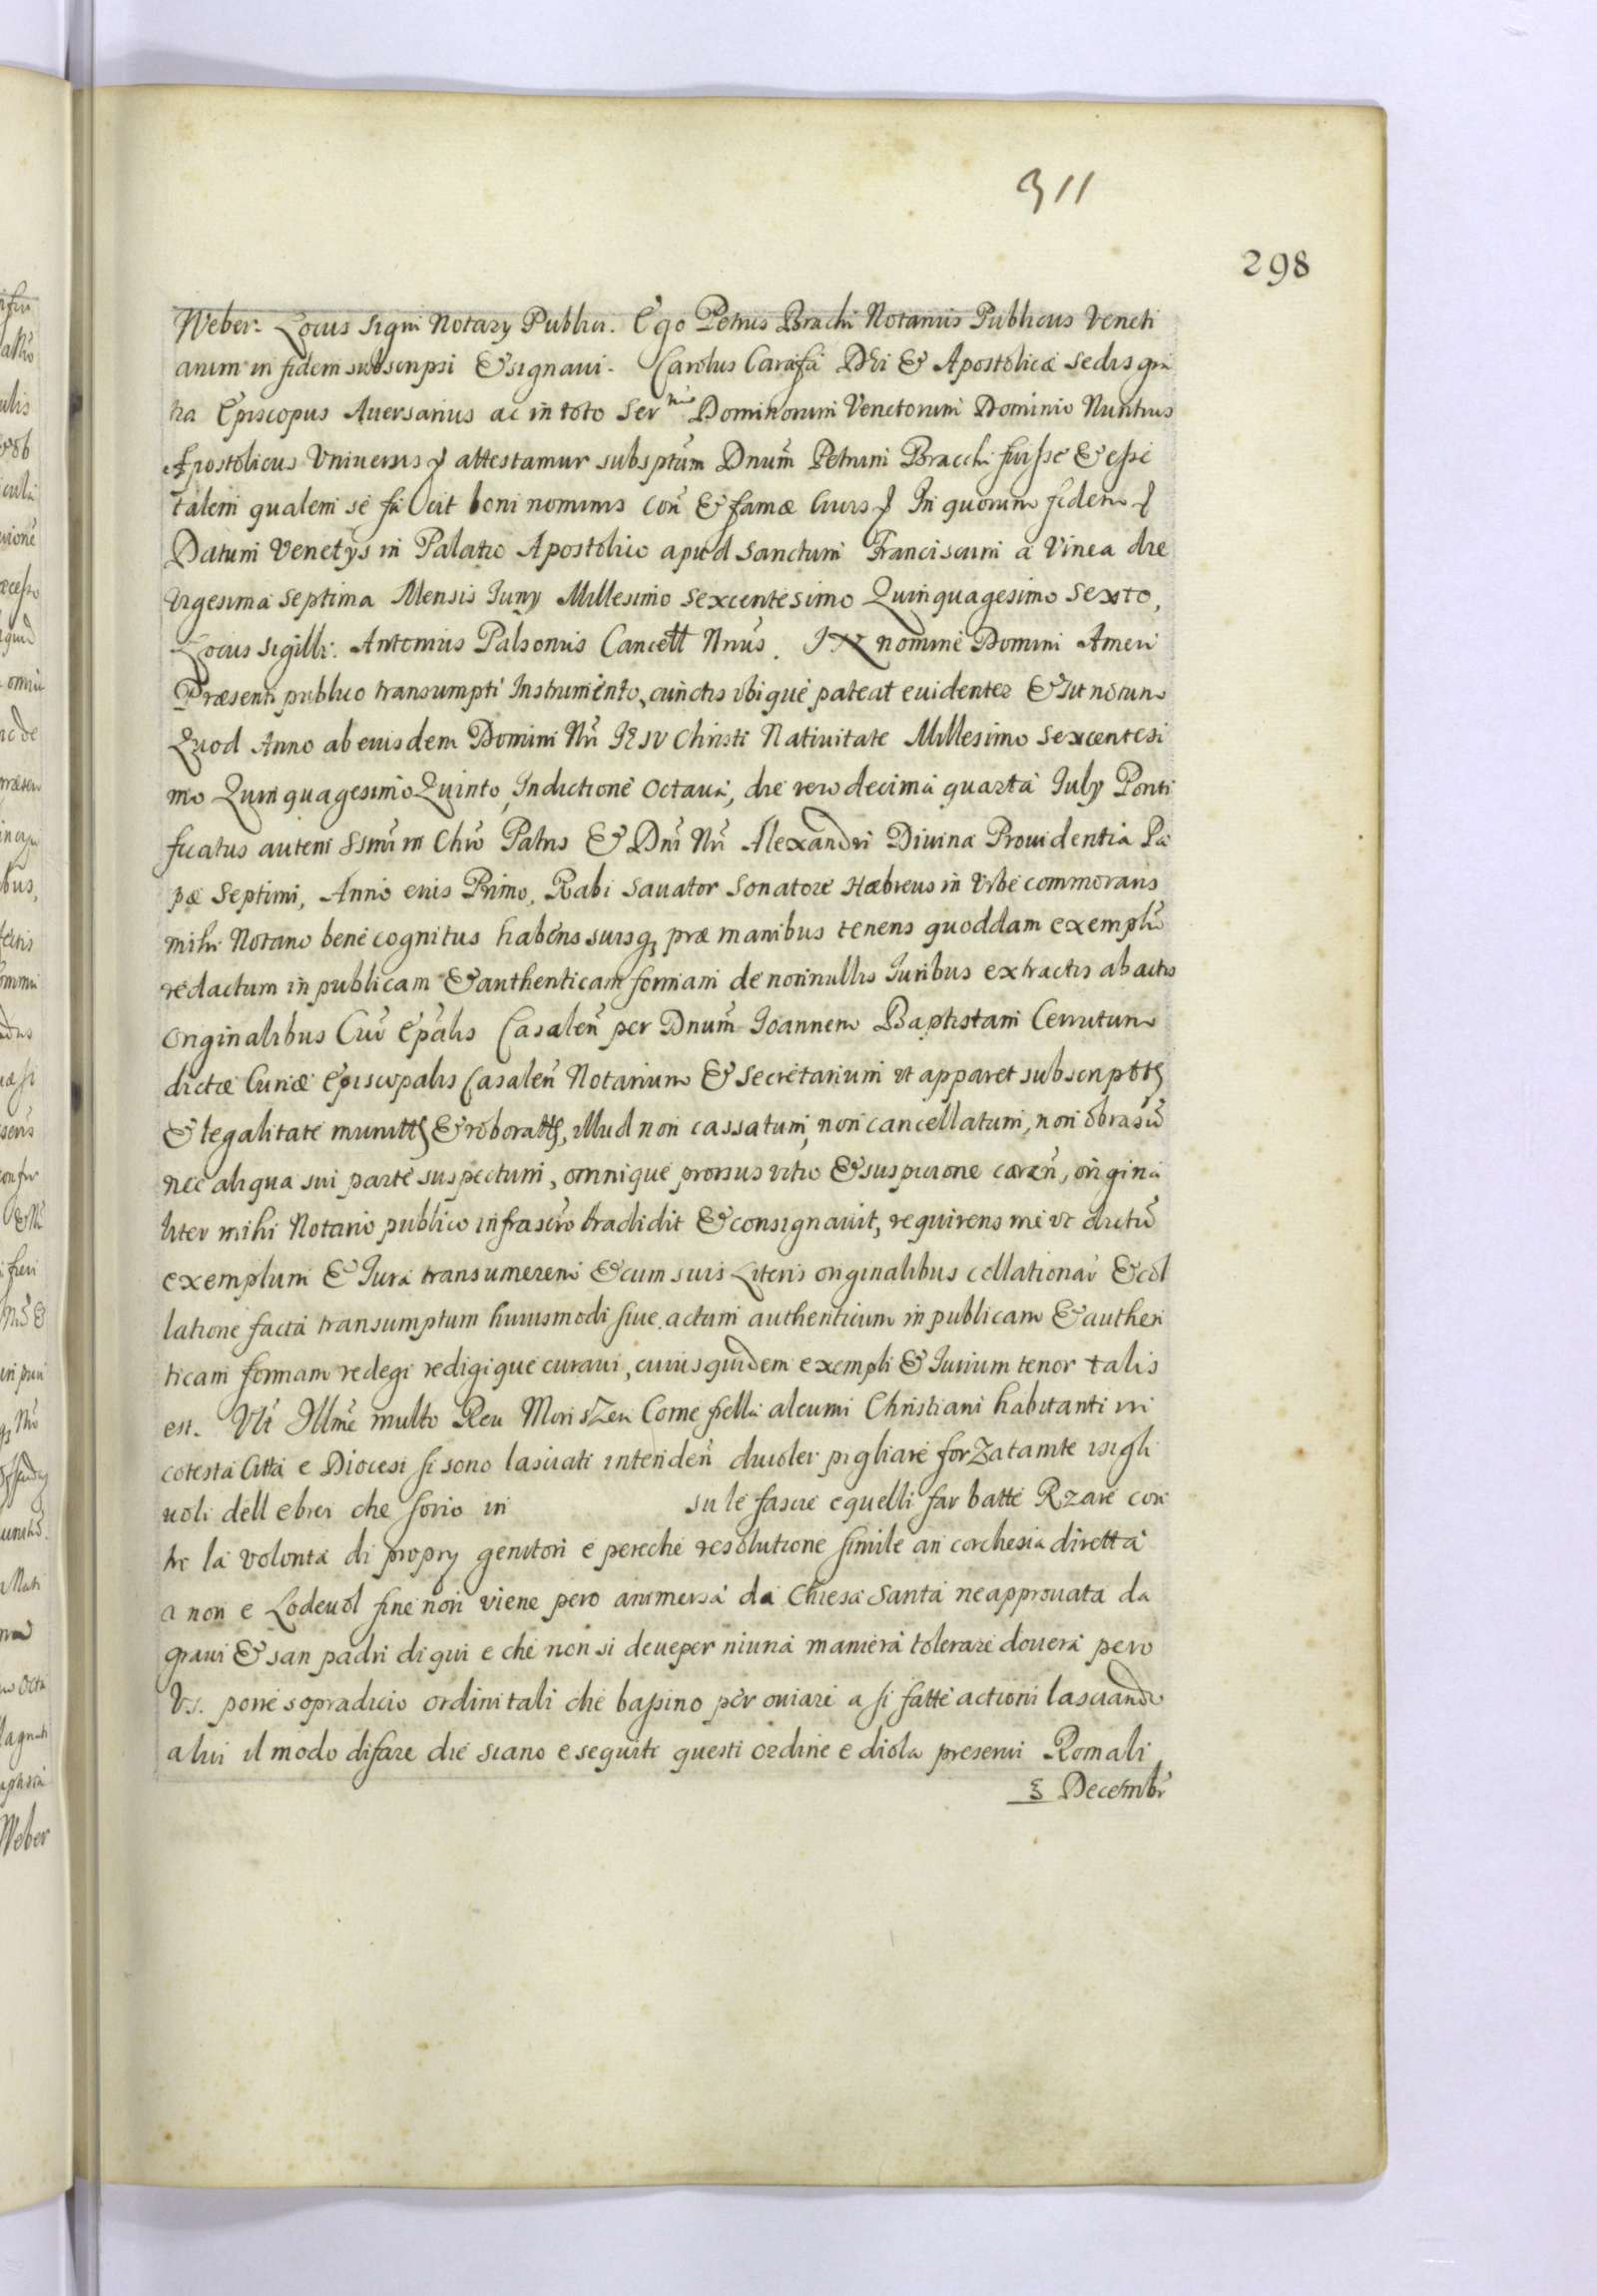 311
298
Weber. Locus signi Notary Publici. Ego Petrus Brachi Notarius Publicus Veneti
arum in fidem subscripsi & signaui. Carolus Carafa Dei & Apostolicæ Sedis gra
tia Episcopus Auersanus ac in toto Ser.mo Dominorum Venetorum Dominio Nuntius
Apostolicus Vniuersis attestamur subsptum Dnum Petrum Bracchi fuisse & esse
talem qualem se fa cit boni nominis con & famæ huius In quorum fidem
Datum Venetys in Palatio Apostolico apud Sanctum Franciscum a Vinea die
Vigesima septima Mensis Iuny Millesimo sexcentesimo Quinquagesimo sexto,
Locus sigilli. Antonius Palsonius Cancell Nrus. IN nomine Domini Amen
Præsenti publico transumpti Instrumento, cunctis vbique pateat euidenter & sit notum
Quod Anno ab eiusdem Domini Nri IESV Christi Natiuitate Millesimo sexcentesi
mo Quinquagesimo Quinto, Indictione octaua, die vero decima quarta Iuly Ponti
ficatus autem ssmi in Chro Patris & Dni Nri Alexandri Diuina Prouidentia Pa
pæ Septimi, Anno eius Primo, Rabi Sauator Sonatore Hæbreus in Vrbe commorans
mihi Notario bene cognitus habens suisq, præ manibus tenens quoddam exemplu
redactum in publicam & authenticam formam de nonnullis Iuribus extractis ab actis
originalibus Cur Epalis Casalen per Dnum Ioannem Baptistam Cerrutum
dictæ Curiæ Episcopalis Casalen Notarium & Secretarium vt apparet subscriptts
& legalitate munitts & roboratts, illud non cassatum, non cancellatum, non obrasu
nec aliqua sui parte suspectum, omnique prorsus vitio & suspicione caren, origina
liter mihi Notario publico infrascro tradidit & consignauit, requirens me vt dictu
exemplum & Iura transumerem & cum suis Literis originalibus collationar & col
latione facta transumptum huiusmodi siue actum authenticum in publicam & authen
ticam formam redegi redigique curaui, cuius quidem exempli & Iurium tenor talis
est. Vlt Illme multo Reu Mon sZen Come fiella alcumi Christiani habitanti in
cotesta Città e Diocesi si sono lasciati intenden duioler pigliare forZatamte isigli
uoli dell ebrei che sono in su le fascie e quelli far batte Rzare con
tre la volontà di propry genitori e pereche resolutione simile an corchesia diretta
a non e Lodeuol fine non viene pero ammersa da Chiesa Santa ne approuata da
graui & san padri di qui e che non si deueper niuna maniera tolerare douera pero
Vs. porre sopradicio ordini tali che bassino per ouiare a si fatte actioni lasciando
a lui il modo di fare die siano e seguiti questi ordine e diola preserui Romali
3 Decembr